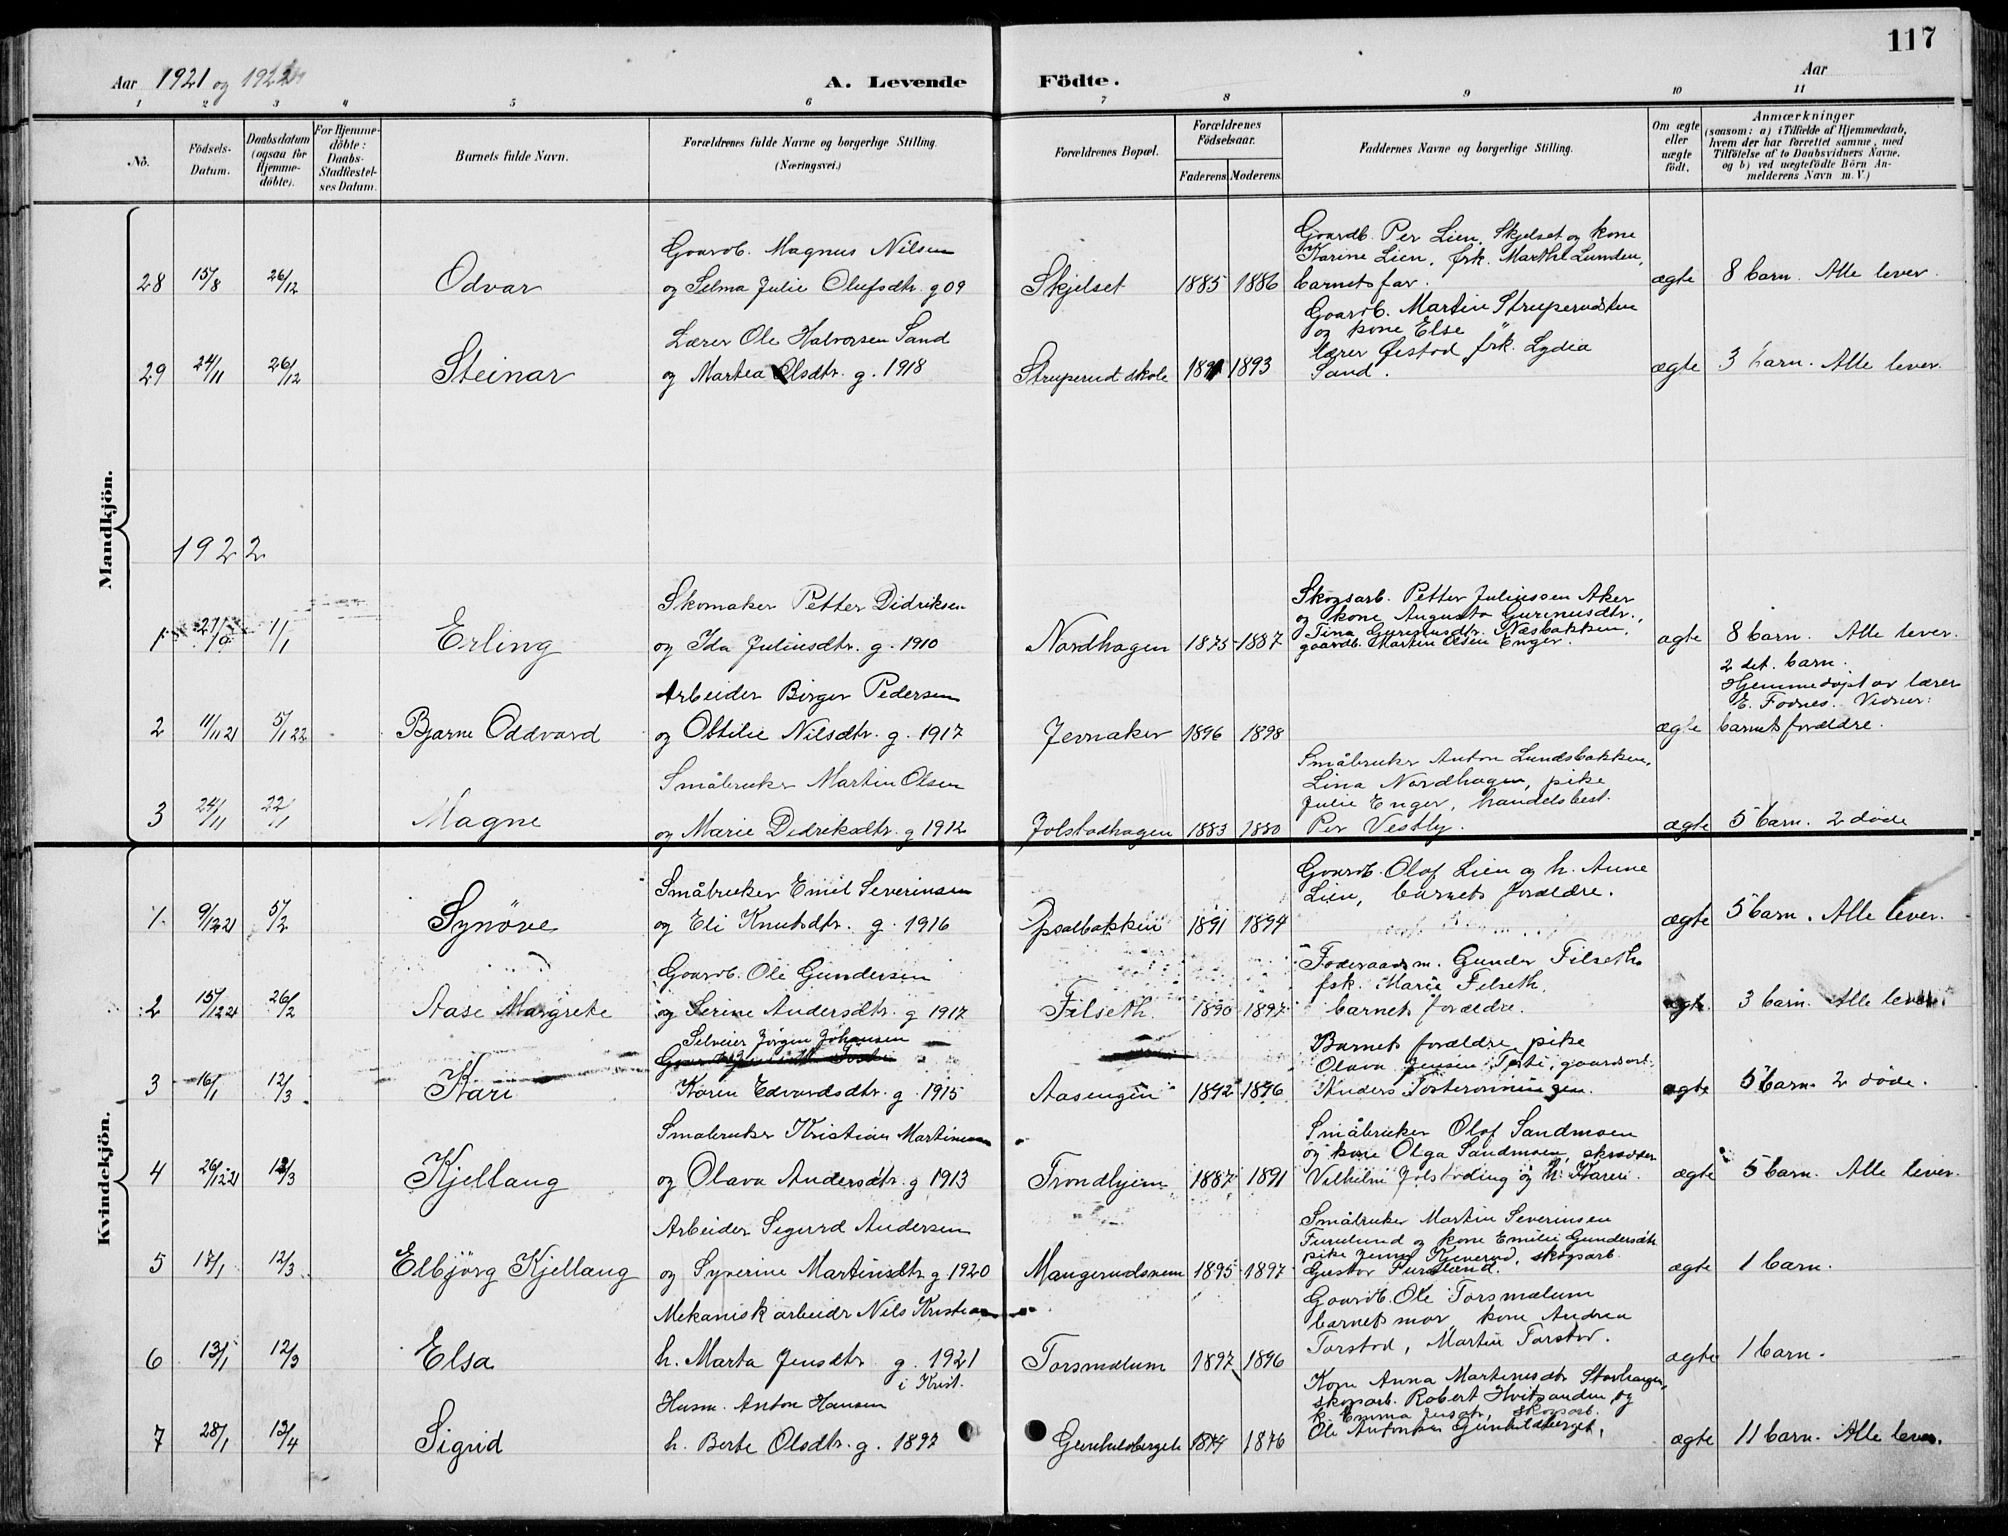 117
Aar 1921 og 1922
A. Levende Födte.
Aar
1 2 3 4 5 6 7 8 9 10 11
No.
Födsels-
Datum.
Daabsdatum
(ogsaa for
Hjemme-
döbte).
For Hjemme-
döbte:
Daabs-
Stadfæstel-
ses Datum.
Barnets fulde Navn.
Forældrenes fulde Navne og borgerlige Stilling.
(Næringsvei.)
Forældrenes Bopæl.
Forældrenes
Födselsaar.
Faderens. Moderens.
Faddernes Navne og borgerlige Stilling.
Om ægte
eller
uægte
födt.
Anmærkninger
(saasom: a) i Tilfælde af Hjemmedaab,
hvem der har forrettet samme, med
Tilföielse af to Daabsvidners Navne,
og b) ved uægtefödte Börn An-
melderens Navn m. V.)
Mandkjön.
Gaardb. Magnus Nilsen
28 15/8 26/12 Odvar og Selma Julie Olufsdtr. g 09 Skjelset 1885 1886
Gaardb. Per Lien, Skjelset og kone
Karine Lien, frk. Marthe Lunden,
barnets far.
ægte 8 barn. Alle lever.
Lærer Ole Halvorsen Sand
29 24/11 26/12 Steinar og Martea Olsdtr. g. 1918 Struperud skole 1891 1893
Gaardb. Martin Struperudsten
og kone Else
lærer Øistad, frk. Lydia
Sand.
ægte 3 barn. Alle lever.
1922
Skomaker Petter Didriksen
1 1/1 Erling og Ida Juliusdtr. g. 1910 Nordhagen 1875 1887
Skogsarb. Petter Juliussen Aker
og kone Augusta Gurinusdtr.,
Tina Gurinusdtr. Næsbakken,
gaardb. Martin Olsen Enger.
ægte 8 barn. Alle lever.
Arbeider Birger Pedersen
2 11/11 21 5/1 22 Bjarne Oddvard og Ottilie Nilsdtr. g. 1917 Jernaker 1896 1898
ægte
2 det. barn.
Hjemmedøpt av lærer
E. Fodnes. Vidner:
barnets forældre.
Småbruker Martin Olsen
3 24/11 22/1 Magne og Marie Didriksdtr. g 1912 Jolstadhagen 1883 1880
Småbruker Anton Lundsbakken,
Lina Nordhagen, pike
Julie Enger, handelsbest.
Per Vestby.
ægte 5 barn. 2 døde
Kvindekjön.
Småbruker Emil Severinsen
1. 9/12 21 5/2 Synöve og Eli Knutsdtr. g. 1916 Opsalbakken 1891 1894
Gaardb. Olaf Lien og h. Anne
Lien, barnets forældre.
ægte 5 barn. Alle lever.
Gaardb. Ole Gundersen
2 15/12 21 26/2 Aase Margrete og Serine Andersdtr. g 1917 Filseth 1890 1897
Føderaadsm. Gunder Filseth
frk. Marie Filseth,
barnets forældre.
ægte 3 barn. Alle lever.
Selveier Jörgen Johansen
3 16/1 12/3 Kari Karen Edvardsdtr. g. 1915 Aasengen 1892 1896
Barnets forældre, pike
Olava Jensen Toste, gaardsarb.
Anders
ægte 5 barn. 2 døde.
Småbruker Kristian Martinsen
4 26/12 21 12/3 Kjellaug og Olava Andersdtr. g 1913 Trondhjem 1887 1891
Småbruker Olaf Sandmoen
og kone Olga Sandmoen, skrædder
Vilhelm Jolstading og h. Karen.
ægte 5 barn. Alle lever.
Arbeider Sigurd Andersen
5 17/1 12/3 Elbjörg Kjellaug og Syverine Martinsdtr g 1920 Mangerudsnem 1895 1897
Småbruker Martin Severinsen
Furulund og kone Emilie Gundersdtr.
pike Jenny Kjenerud, skogsarb.
Gustav Furulund.
ægte 1 barn.
Mekanisk arbeidr Nils Kristian
6 13/1 12/3 Elsa h. Marta Jensdtr g. 1921 Torsmælum 1897 1896
i Krist.
Gaardb. Ole Torsmælum
barnets mor, kone Andrea
Torstad, Martin Torstad.
ægte 1 barn.
Husm. Anton Hansen
7 28/1 13/4 Sigrid h. Berte Olsdtr. g. 1897 Gunhildberget 1874 1876
Kone Anna Martinusdtr Stavhaugen,
skogsarb. Robert Hvitsanden og
k. Emma Jensdtr, skogsarb.
Ole Antonsen Gunhildberget.
ægte 11 barn. Alle lever.